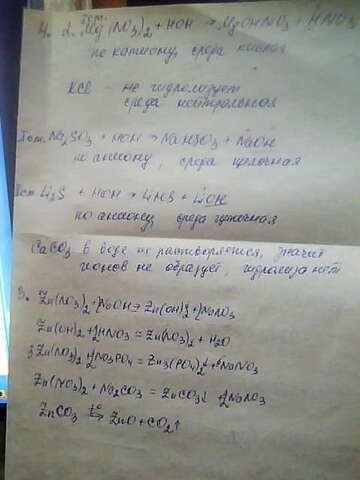 4. 2. Iст. Mg(NO3)2 + HOH → MgOHNO3 + HNO3
по катиону, среда кислая
KCl - не гидролизует
среда нейтральная
Iст. Na2SO3 + HOH → NaHSO3 + NaOH
по аниону, среда щелочная
Iст Li2S + HOH → LiHS + LiOH
по аниону, среда щелочная
CaCO3 в воде не растворяется, значит
ионов не образует, гидролиза нет
5. Zn(NO3)2 + 2NaOH → Zn(OH)2↓ + 2NaNO3
Zn(OH)2 + 2HNO3 = Zn(NO3)2 + H2O
3Zn(NO3)2 + 2Na3PO4 = Zn3(PO4)2↓ + 6NaNO3
Zn(NO3)2 + Na2CO3 = ZnCO3↓ + 2NaNO3
ZnCO3 t° → ZnO + CO2↑